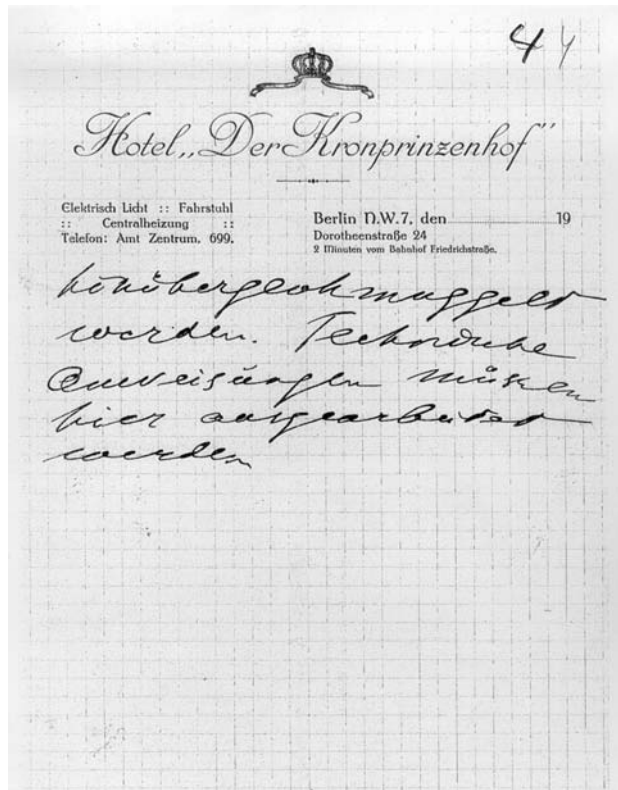 4 4
Hotel „Der Kronprinzenhof“
Elektrisch Licht :: Fahrstuhl
:: Centralheizung ::
Telefon: Amt Zentrum, 699.
Berlin N.W.7, den 19
Dorotheenstraße 24
2 Minuten vom Bahnhof Friedrichstraße.
hinübergeschmuggelt
werden. Technische
Anweisungen müssen
hier ausgearbeitet
werden